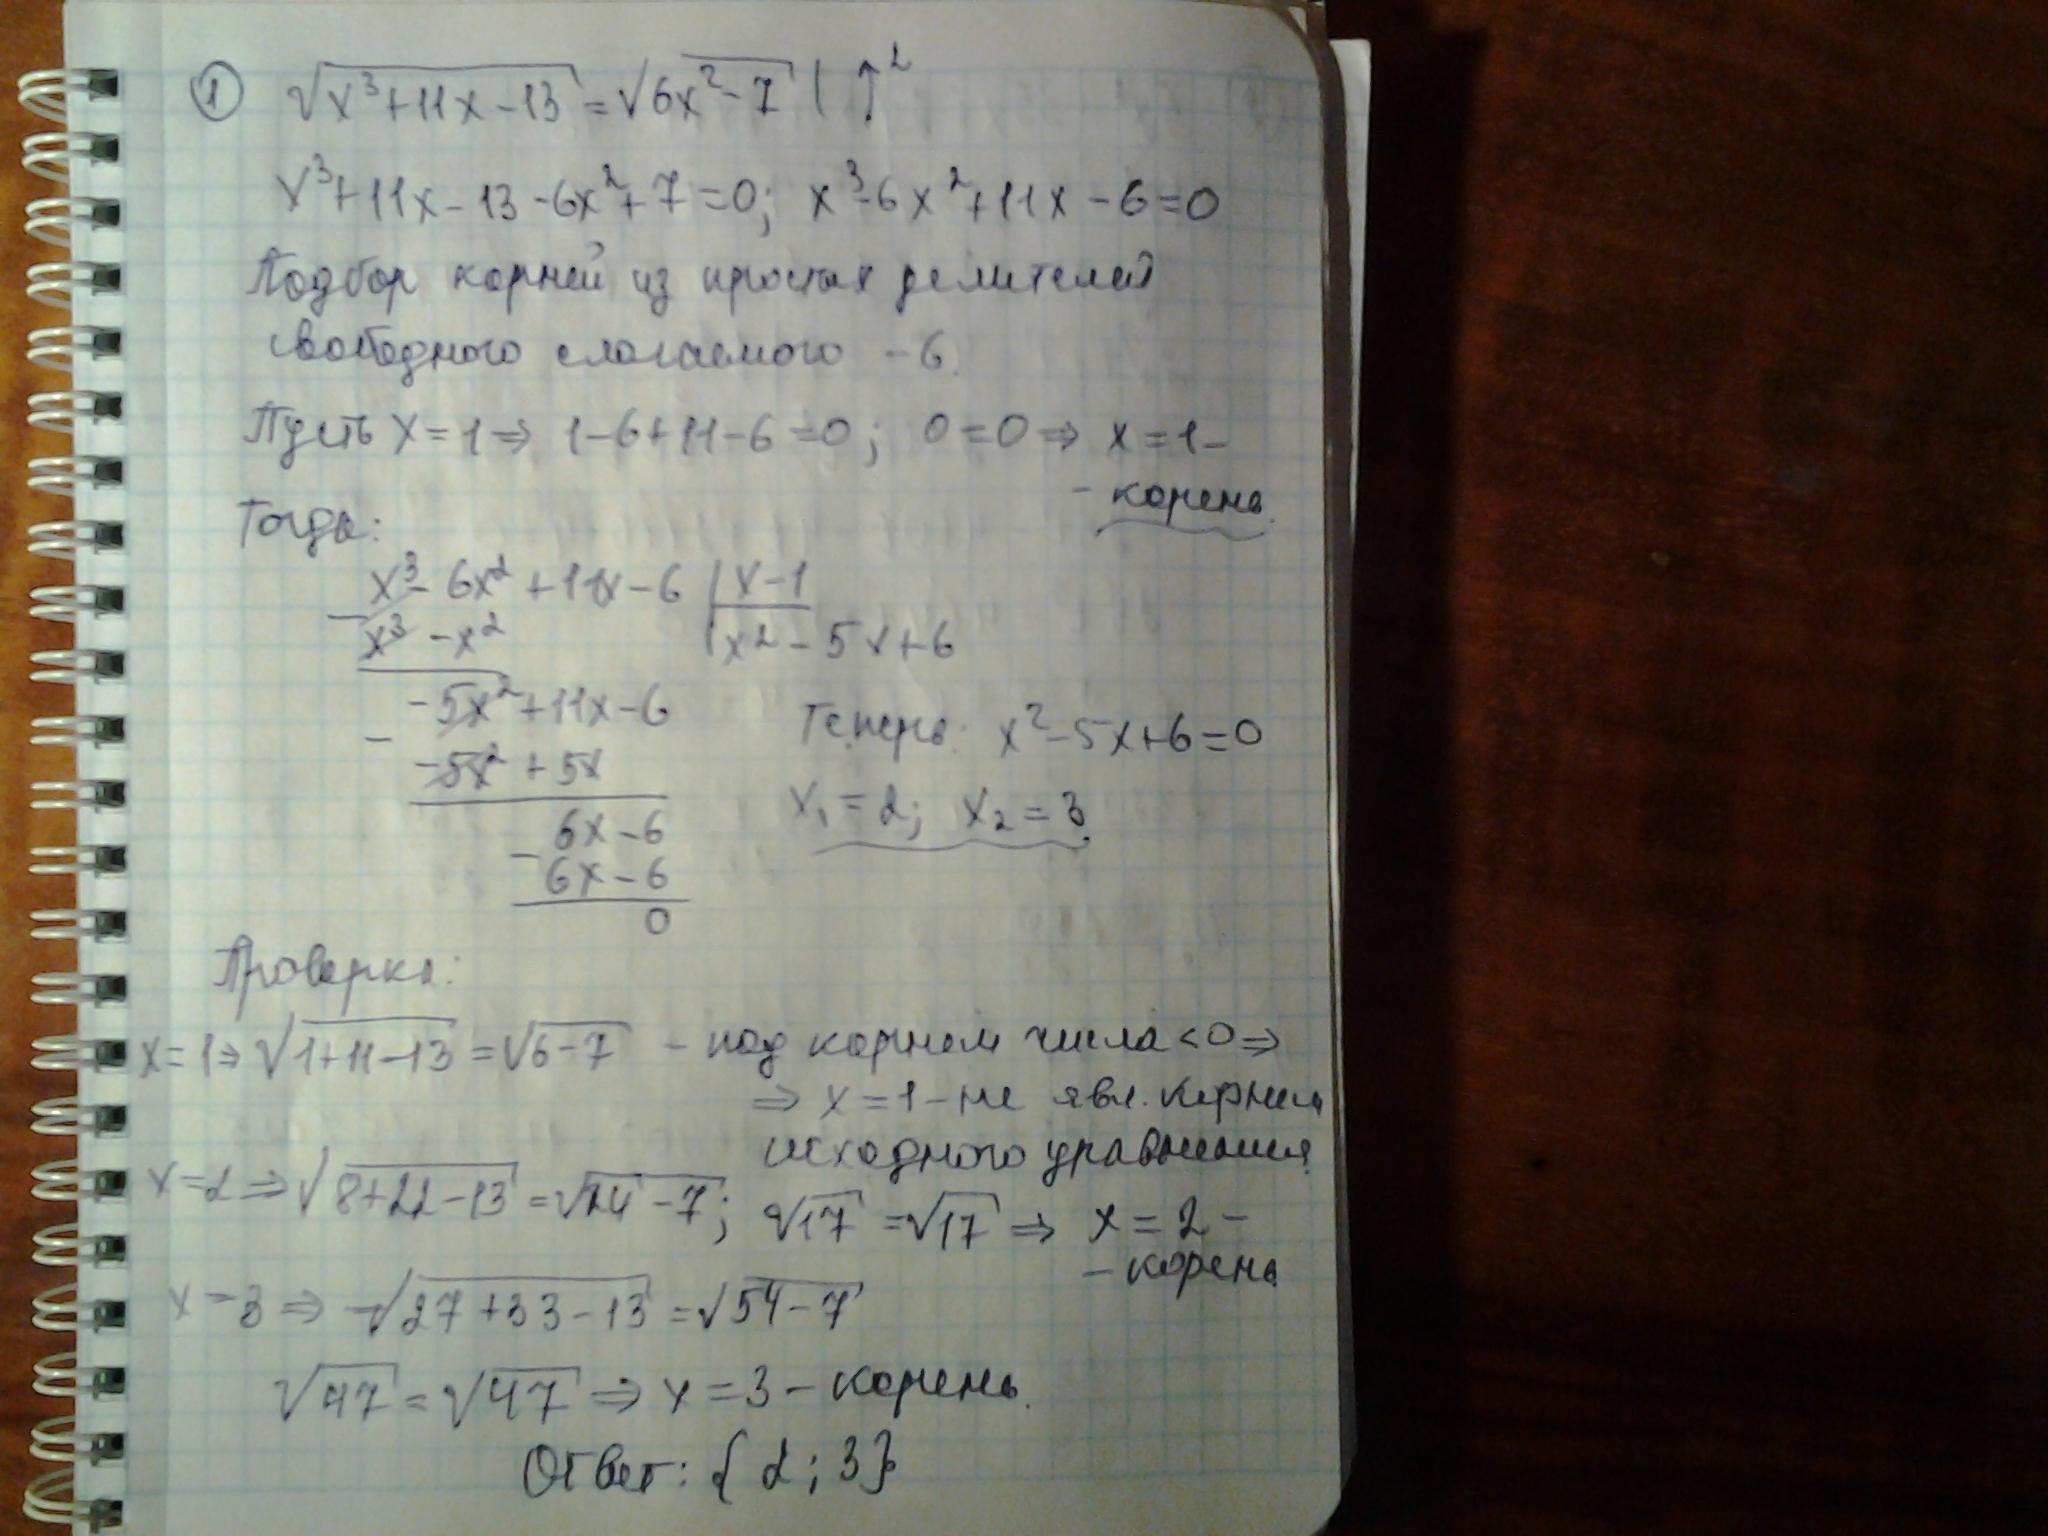 ① √(x³+11x-13) = √(6x²-7) | ↑²
x³+11x-13-6x²+7=0; x³-6x²+11x-6=0
Подбор корней из простых делителей
свободного слагаемого -6.
Пусть x=1 ⇒ 1-6+11-6=0; 0=0 ⇒ x=1-
- корень.
Тогда:
x³-6x²+11x-6 | x-1
- x³-x² | x²-5x+6
-5x²+11x-6
- -5x²+5x
6x-6
- 6x-6
0
Теперь: x²-5x+6=0
x₁=2; x₂=3.
Проверка:
x=1⇒ √(1+11-13) = √(6-7) - под корнем числа <0 ⇒
⇒ x=1 - не явл. корнем
исходного уравнения.
x=2 ⇒ √(8+22-13) = √(24-7); √17 = √17 ⇒ x=2-
- корень
x=3 ⇒ √(27+33-13) = √(54-7)
√47 = √47 ⇒ x=3 - корень.
Ответ: {2; 3}